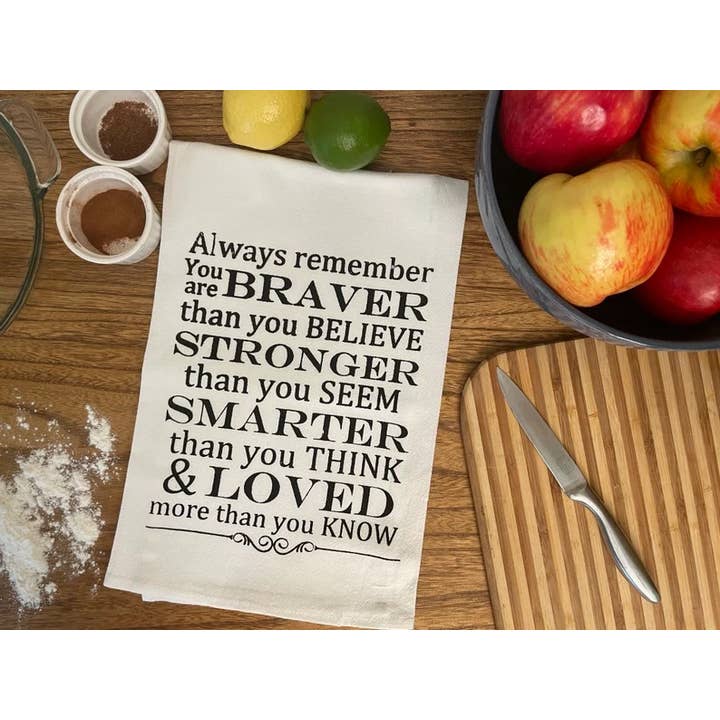 Always remember
You are BRAVER
than you BELIEVE
STRONGER
than you SEEM
SMARTER
than you THINK
& LOVED
more than you KNOW